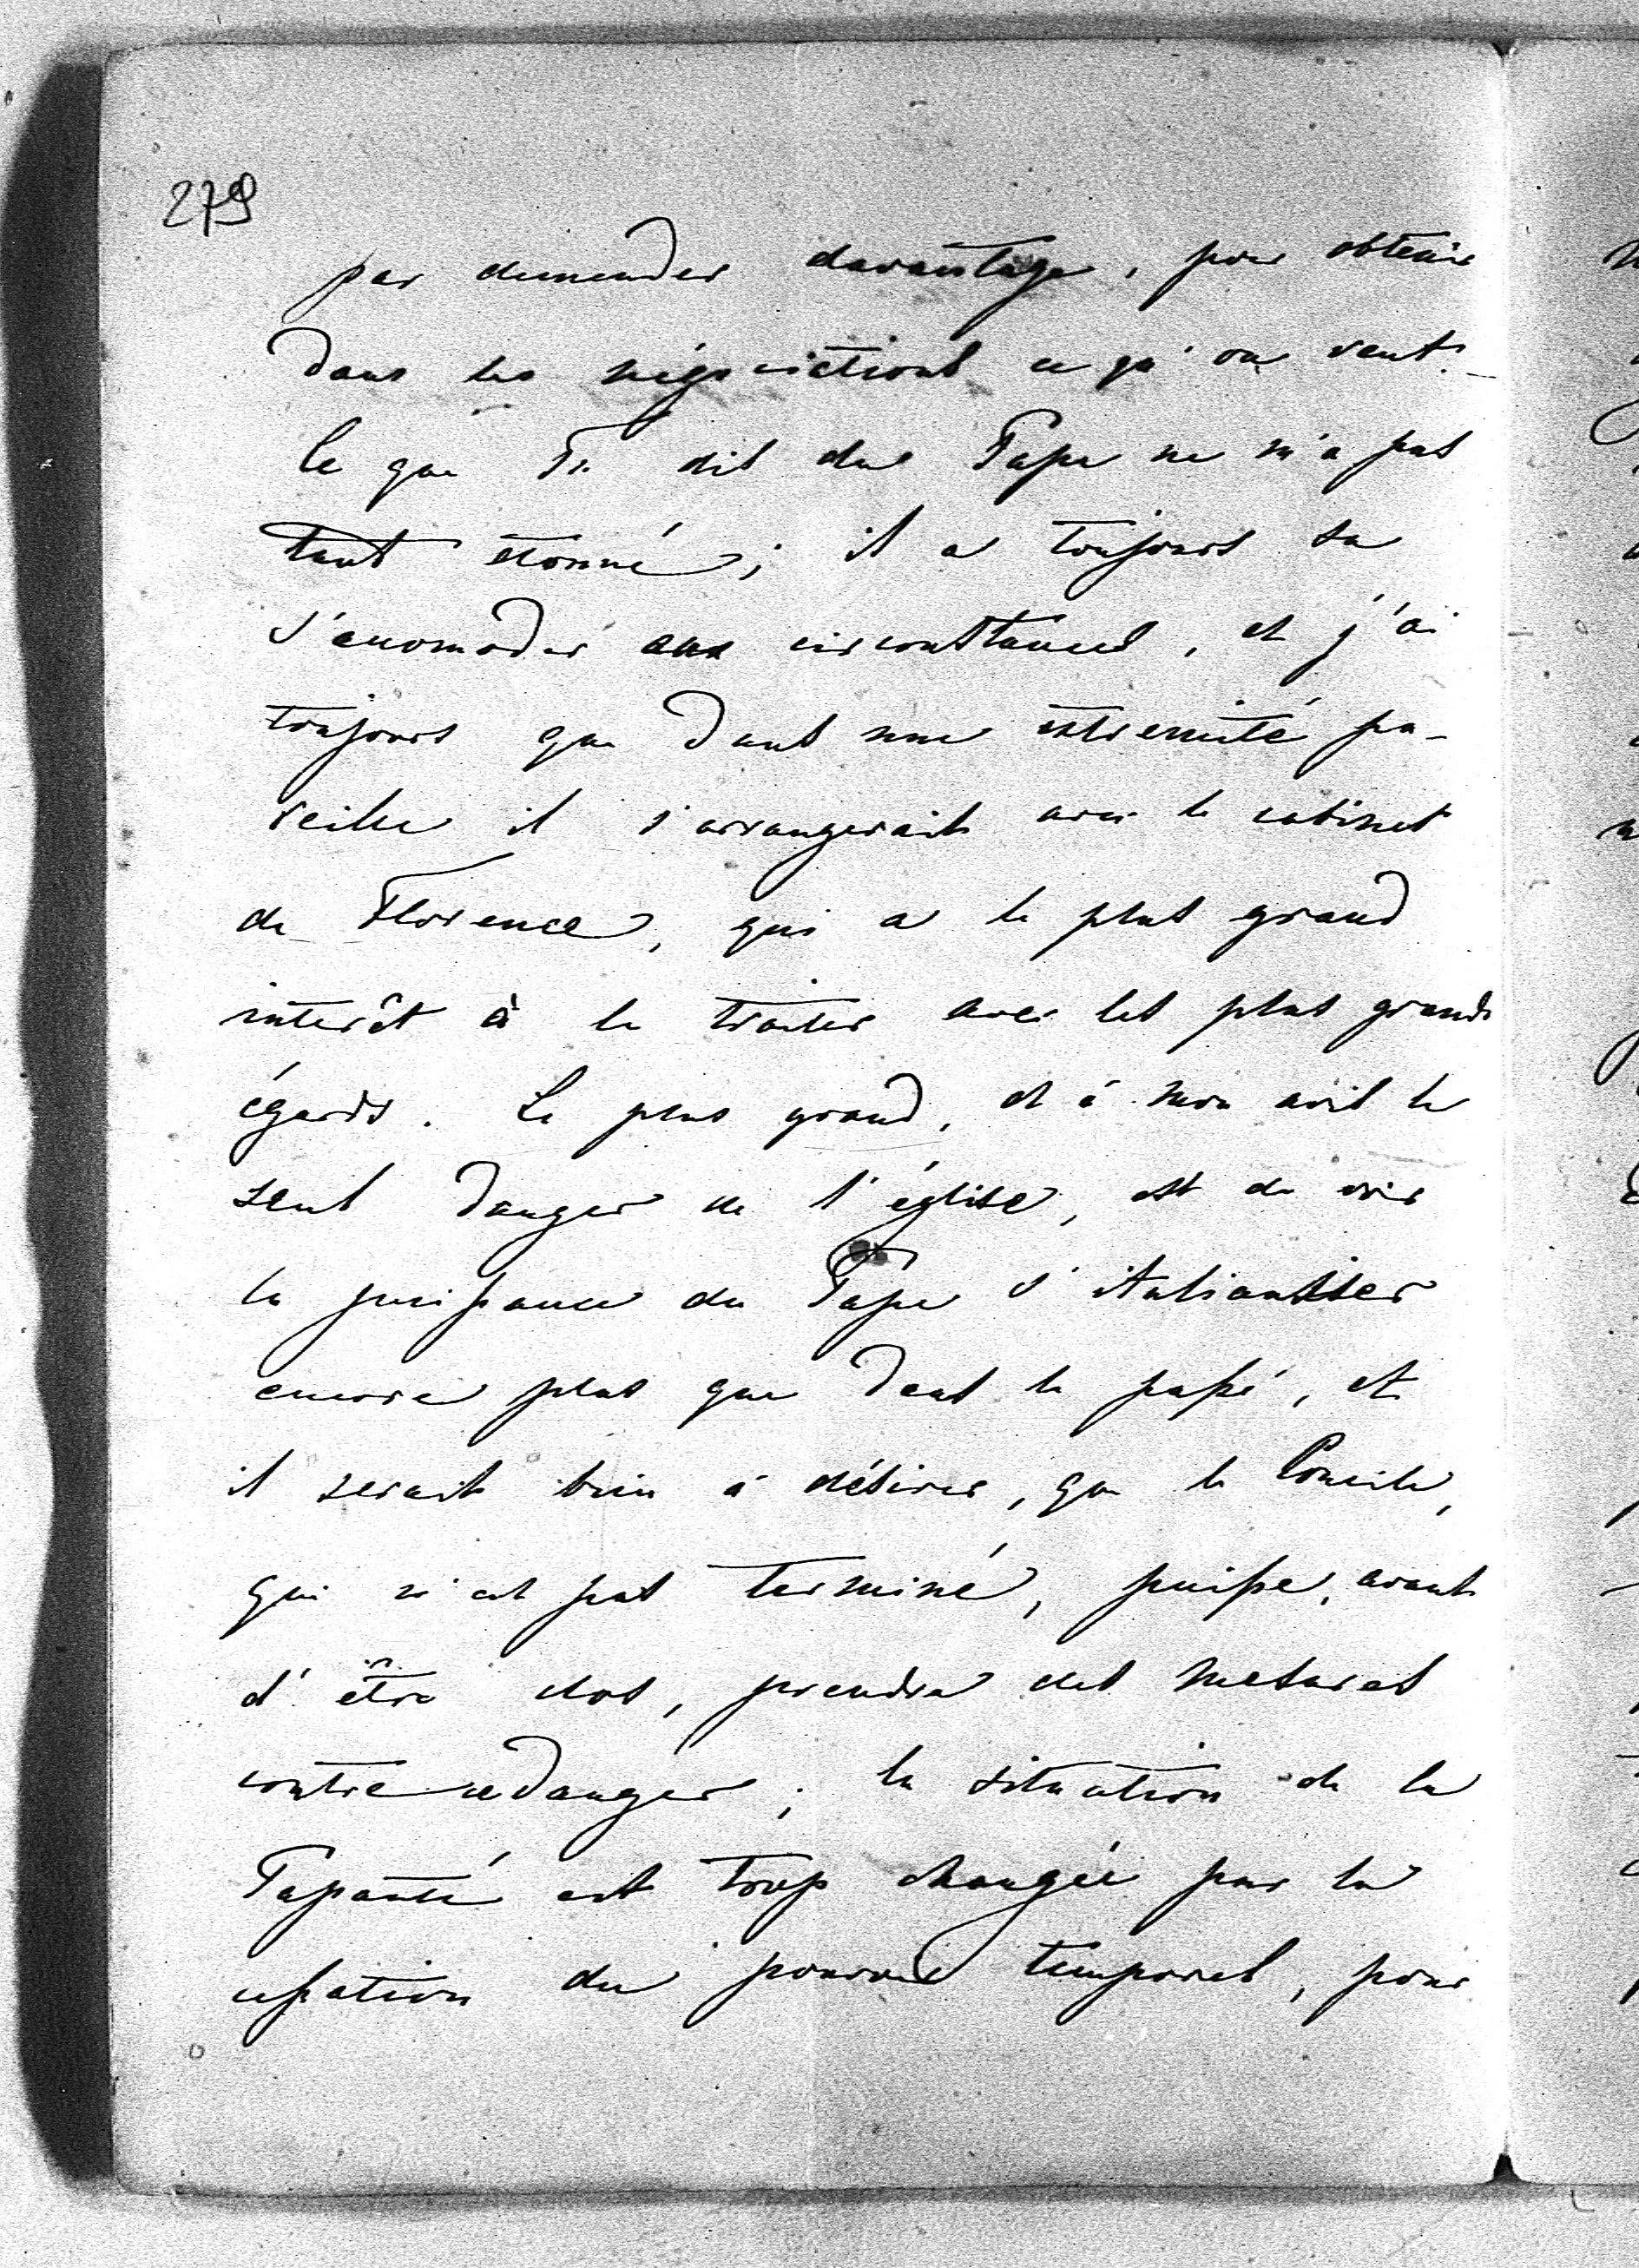 279
par demander davantage, pour obtenir
dans les négociations ce qu'on veut. –
Ce que Tu dis du Pape ne m'a pas
tant étonné; il a toujours su
s'accomoder aux circonstances, et j'ai
toujours que dans une extremité pa-
reille il s'arrangerait avec le cabinet
de Florence, qui a le plus grand
interêt à le traiter avec les plus grands
égards. Le plus grand, et à mon avis le
seul danger de l'église, est de voir
la puissance du Pape s'italianiser
encore plus que dans le passé, et
il serait bien à désirer, que le Concile,
qui n'est pas terminé, puisse, avant
d'être clos, prendre des mesures
contre ce danger; la situation de la
Papauté est trop changée par la
cessation du pouvoir temporel, pour